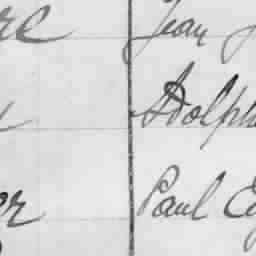 re Jean
Adolph
er Paul Eu